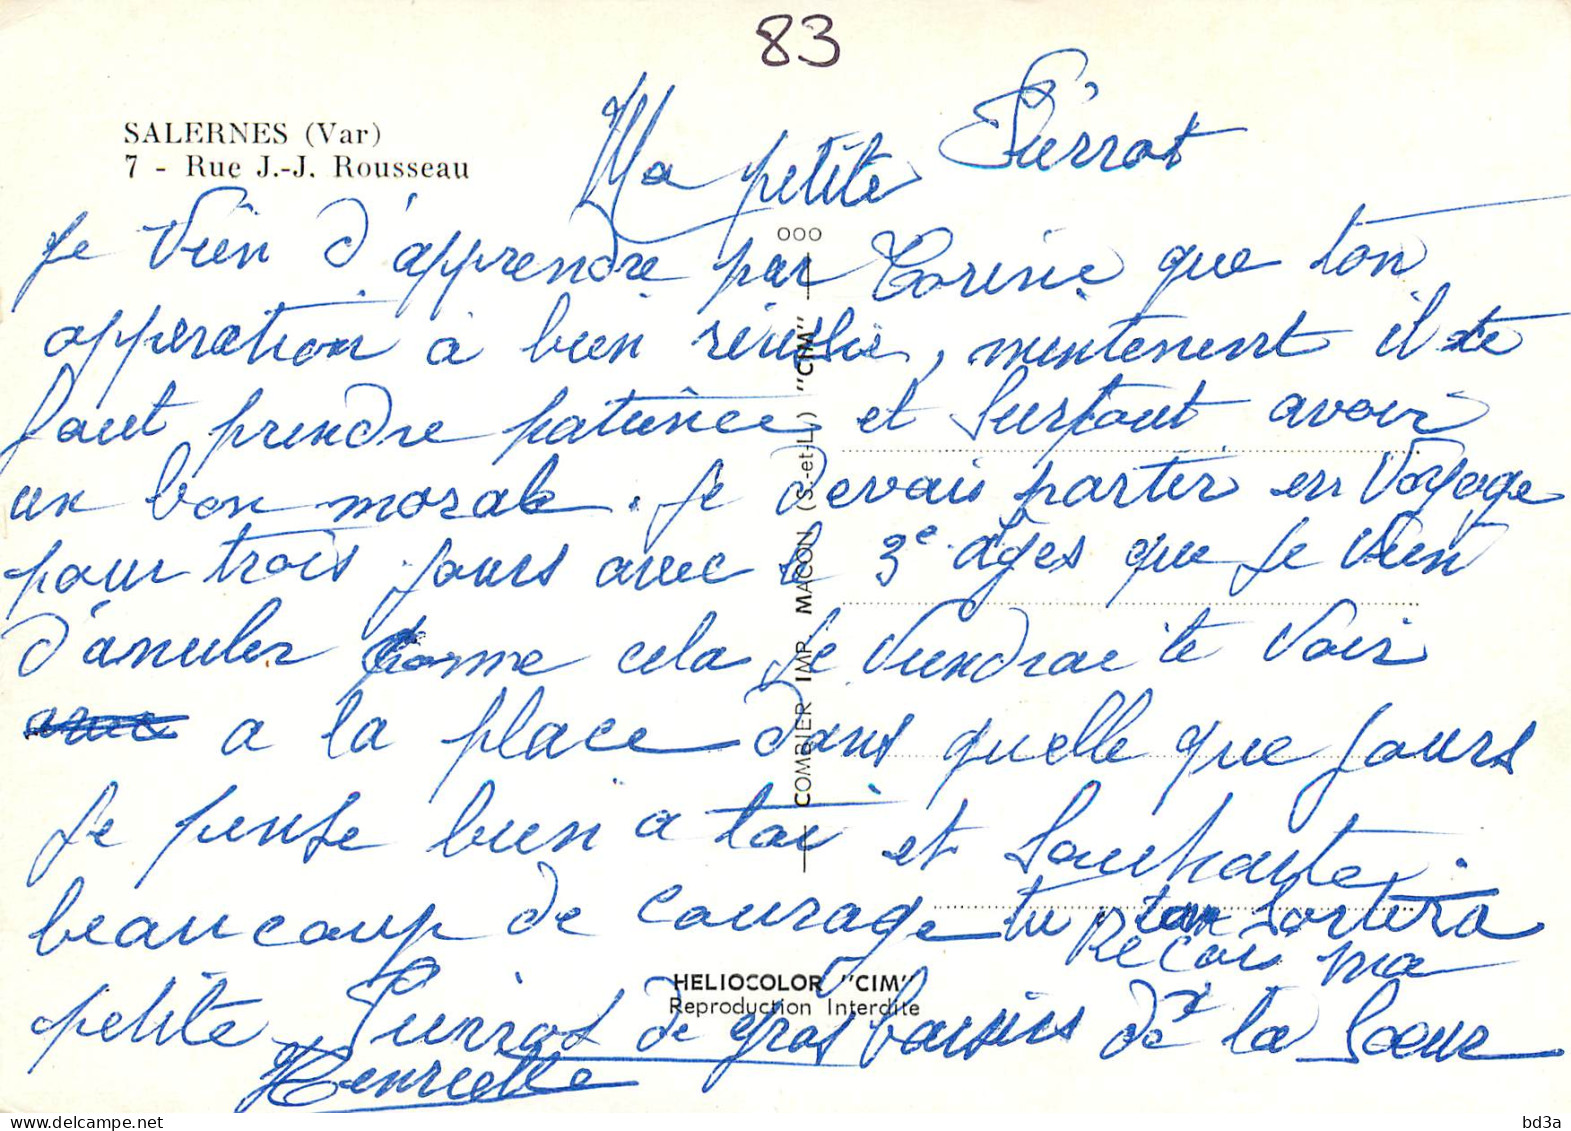 83
SALERNES (Var)
7 - Rue J.-J. Rousseau
Ma petite Pierrot
Je vien d'apprendre par Corine que ton
opperation à bien réussie, mintenent il te
faut prendre patience et surtout avoir
un bon morale. Je devais partir en voyage
pour trois jours avec le 3e ages que je vien
d'anuler come cela je viendrai te voir
a la place dans quelle que jours
Je pense bien a toi et souhaite
beaucoup de courage tu t'en sortira
Recoi ma
petite Pierrot de gros baisers de ta la Soeur
Henriette
COMBIER IMP. MACON (S.-et-L.) "CIM"
HELIOCOLOR "CIM"
Reproduction Interdite
delcampe.net
bd3a